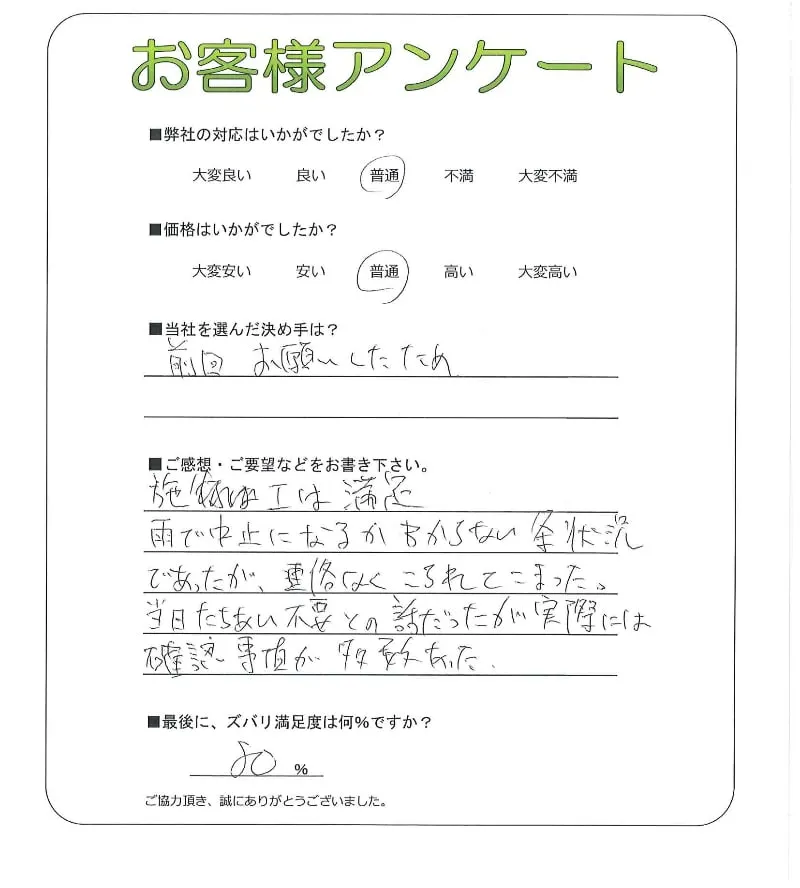 お客様アンケート
■弊社の対応はいかがでしたか？
大変良い 良い 普通 不満 大変不満
■価格はいかがでしたか？
大変安い 安い 普通 高い 大変高い
■当社を選んだ決め手は？
前回 お願いしたため
■ご感想・ご要望などをお書き下さい。
施工は 満足
雨で中止になるか わからない 状況
であったが、連絡なく こられてこまった。
当日たちあい不要との話だったが実際には
確認事項が多数あった.
■最後に、ズバリ満足度は何%ですか？
%
ご協力頂き、誠にありがとうございました。